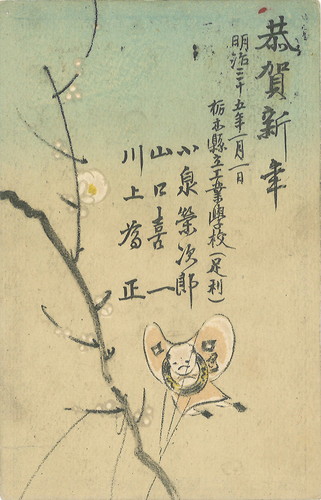 恭賀新年
明治三十五年一月一日
栃木縣立工業學校(足利)
小泉榮次郎
山口喜一
川上為正